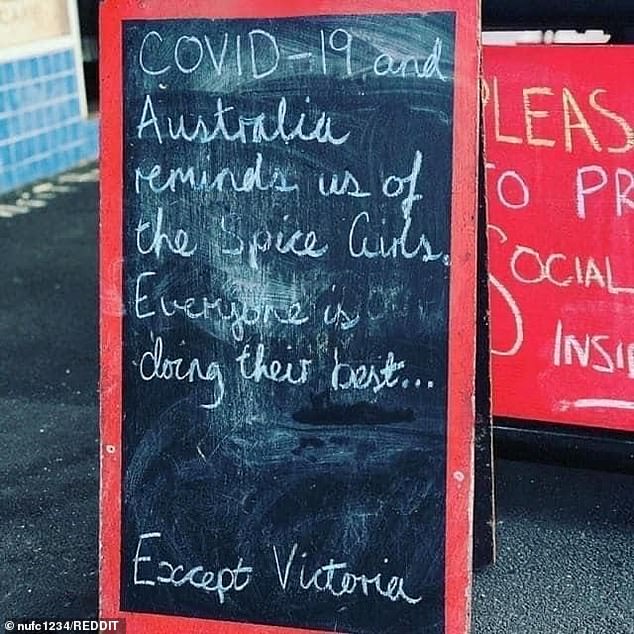 COVID-19 and
Australia
reminds us of
the Spice Girls.
Everyone is
doing their best...
Except Victoria
LEAS
O PR
SOCIAL
INSI
© nufc1234/REDDIT